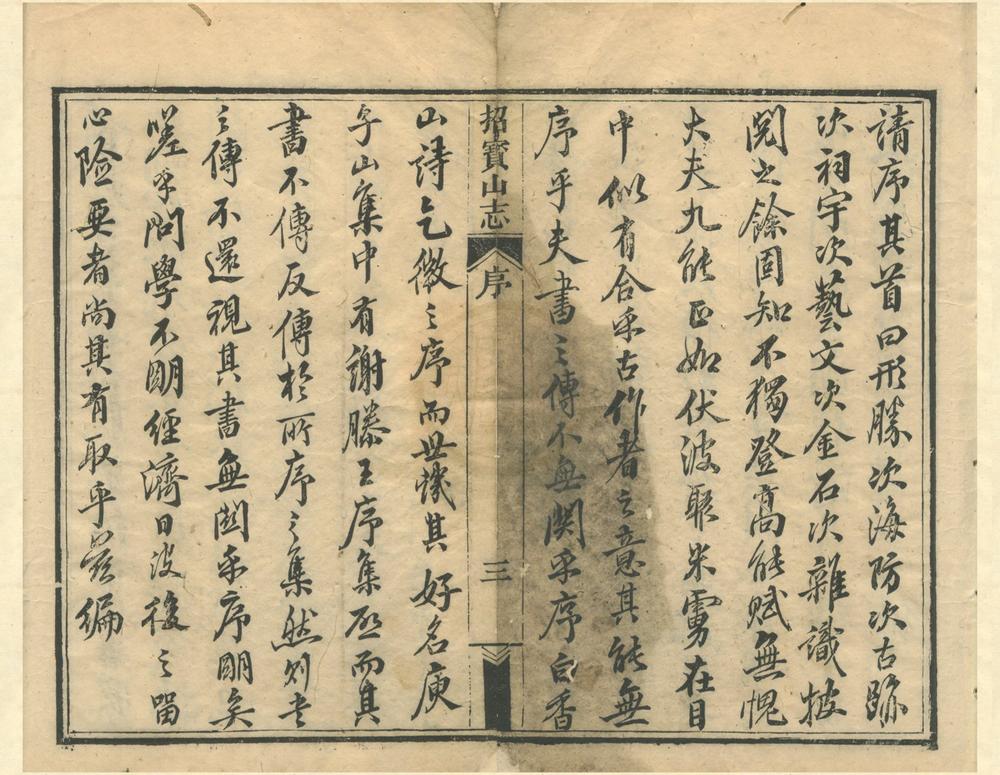 請序其首曰形勝次海防次古跡
次祠宇次藝文次金石次雜識披
閱之餘固知不獨登高能賦無愧
大夫九能正如伏波聚米雩在目
中似有合乎古作者之意其能無
序乎夫書之傳不無関乎序白香
招寶山志
序
三
山詩乞微之序而世譏其好名庾
子山集中有謝滕王序集啟而其
書不傳反傳於所序之集然則書
之傳不還視其書無関乎序明矣
嗟乎問學不明經濟日没後之留
心險要者尚其有取乎是編